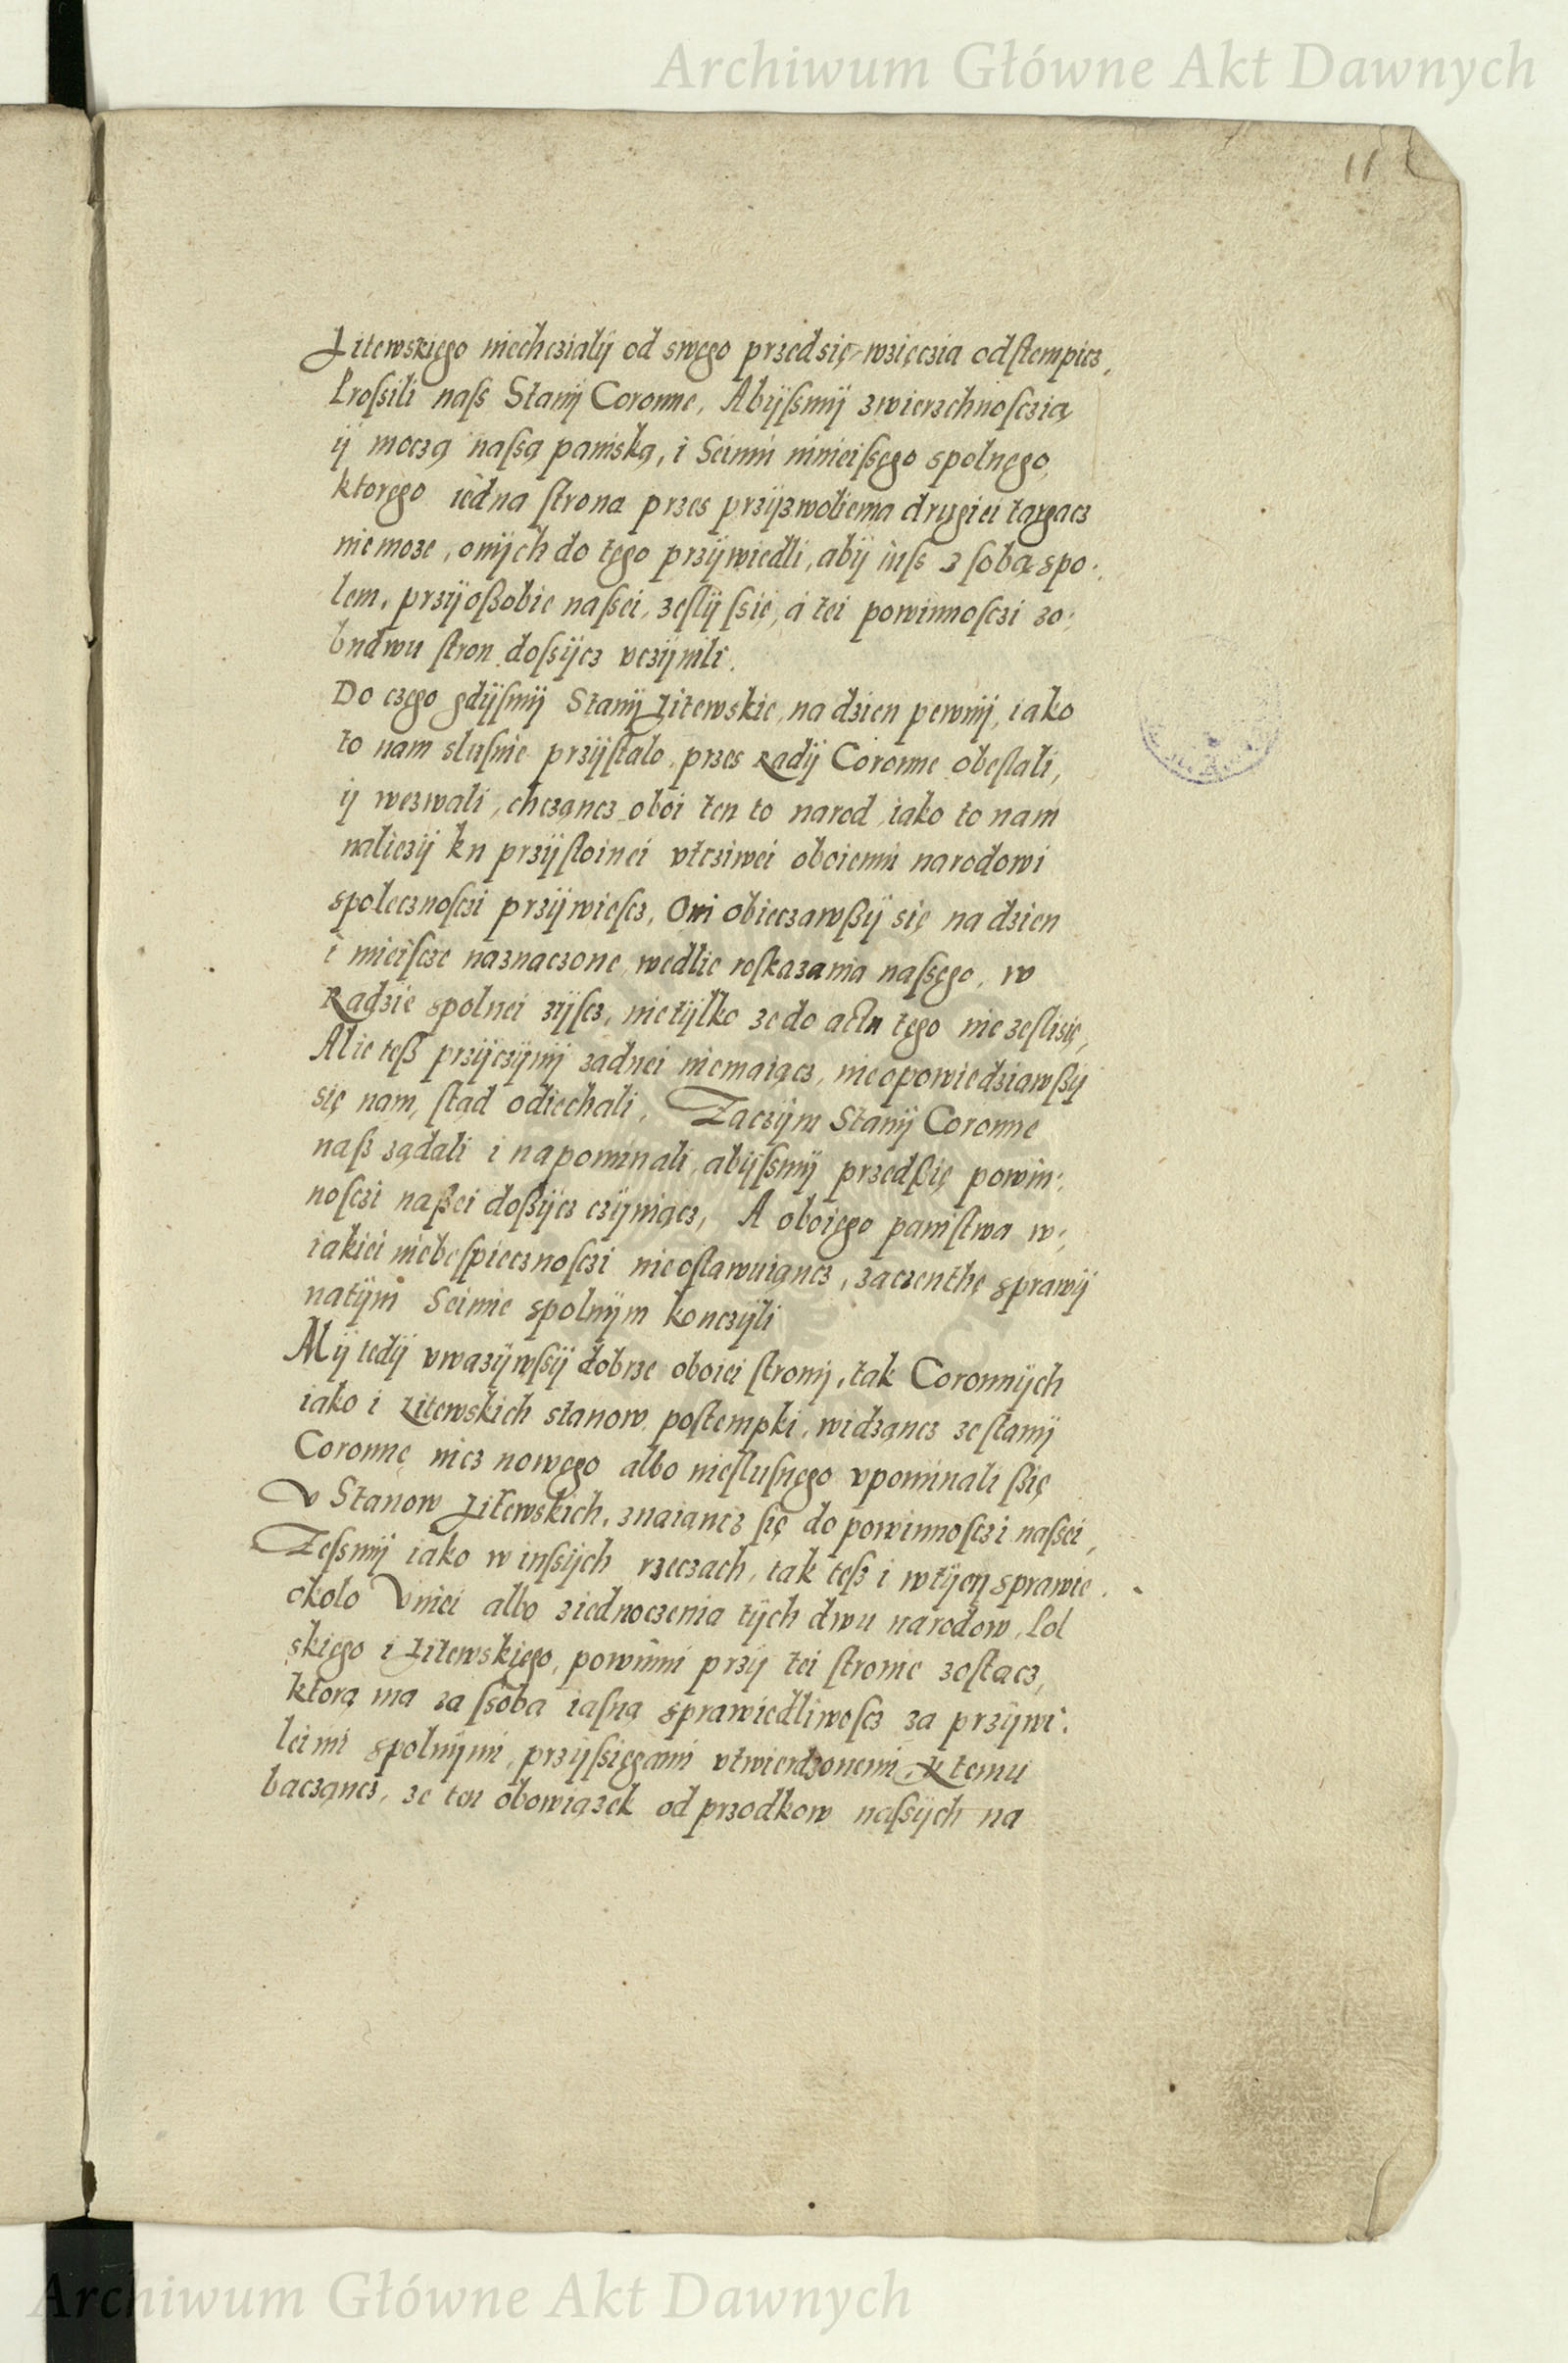 Archiwum Główne Akt Dawnych
11
Litewskięgo niechczialÿ od swęgo przedsię wzięczia odſtempicz,
Proſsili naſs Stanÿ Coronne, Abÿſsmÿ zwierzchnoſczią
ÿ moczą naſsą paniską, i Seimu ninieiſsęgo spolnęgo,
ktoręgo iedna ſtrona przes przÿzwolienia drugiei targacz
nie moze, onÿch do tęgo przÿwiedli, abÿ iuſs z ſobą spo:
lem, przÿ oßobie naſsei, zeſlÿ ſsię, á tei powinnoſczi zo:
budwu ſtron doſsÿcz vczÿnili.
Do częgo gdÿſmÿ Stanÿ Litewskie, na dzien pewnÿ, iako
to nam sluſnie przÿſtalo, przes Radÿ Coronne obeſlali,
ÿ wezwali, chcząncz oboi ten to narod iako to nam
naliezÿ ku przÿſtoinei vtcziwei oboiemu narodowi
spolecznoſczi przÿwieſcz, Oni obieczawßÿ się na dzien
i mieiſcze naznaczone, wedlie roſkazania naſsęgo, w
Radzie spolnei zÿſcz, nietÿlko ze do actu tęgo nie zeſlisię,
Alie teß przÿczÿnÿ zadnei niemaiącz, nieopowiedziawßÿ
się nam, ſtąd odiechali, Zaczÿm Stanÿ Coronne
naß ządali i napominali, abÿſsmÿ przedßię powin:
noſczi naßei doßÿcz czÿniącz, A oboięgo paniſtwa w:
iakiei niebeſpiecznoſczi nieoſtawuiąncz, zaczenthe sprawÿ
natÿm Seimie spolnÿm konczÿli
Mÿ tedÿ vwazÿwſsÿ dobrze oboiei ſtronÿ, tak Coronnÿch
iako i Litewskich stanow poſtempki, widząncz ze ſtanÿ
Coronnę nicz nowęgo albo nieſluſnęgo vpominali ßię
v Stanow Litewskich, znaiancz ſię do powinnoſczi naſsei,
Zeſsmÿ iako w inſsÿch rzeczach, tak teß i wtÿen sprawie
okolo Vniei albo ziednoczenia tÿch dwu narodow, Pol
skięgo i Litewskięgo, powinni przÿ tei ſtronie zoſtacz,
ktorą ma za ſsobą iaſną sprawiedliwoſcz za przÿwi:
leimi spolnÿmi, przÿſsięgami vtwierdzonemi, k temu
bacząncz, ze ten obowiązek od przodkow naſsÿch na
Archiwum Główne Akt Dawnych